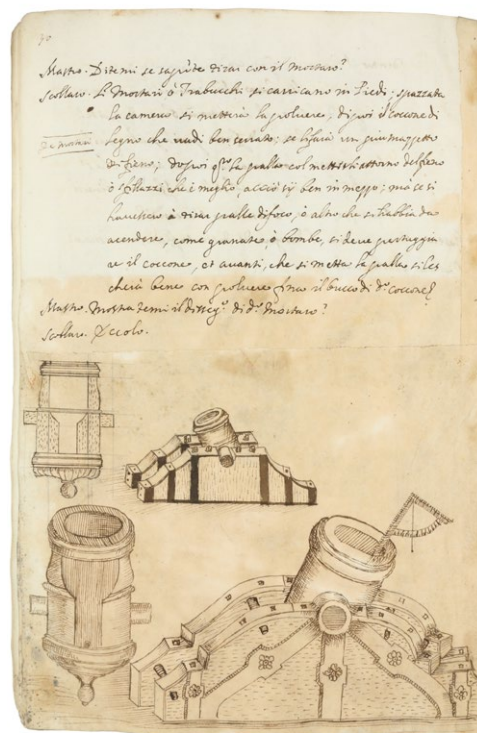 30
Mastro. Ditemi se sapete tirar con il mortaro?
Scollaro. Li Mortari ò Trabucchi si carricano in Piedi; spazzata
la camera si metterà la poluere, di poi il coccone di
Da mortari
legno che vadi ben serrato; se li farà un piumazzetto
di fieno; dopoi la palla col metterli attorno del fieno
ò sfillazzi che è meglio, acciò sij ben in mezzo; ma se si
havessero à tirar palle di foco, ò altro che si habbia da
acendere, come granate, ò bombe, si deve pertuggia
re il coccone, et avanti, che si metta la palla si les
cherà bene con poluere fino il bucco di d.º coccone
Mastro. Mostratemi il disseg.º di d.º mortaro?
Scollaro. Eccolo.